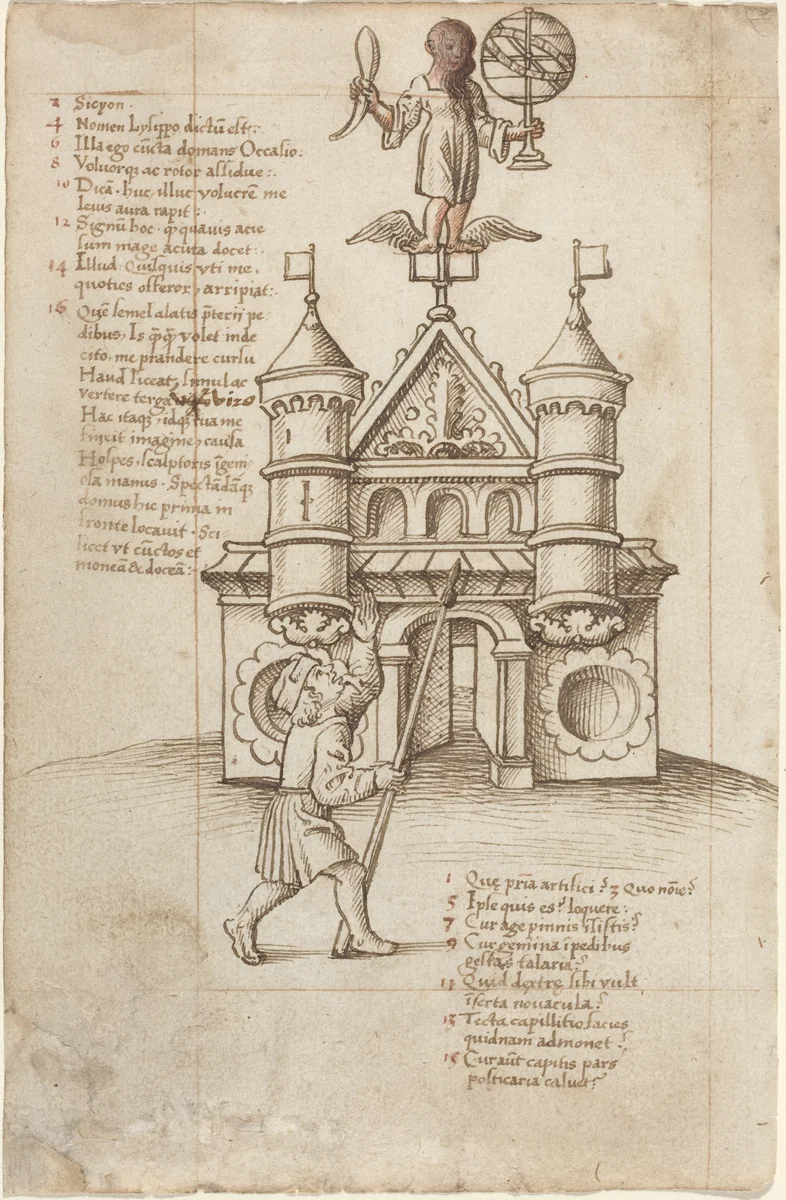 2 Sicyon.
4 Nomen Lysippo dictũ est:.
6 Illa ego cũcta domans Occasio.
8 Voluorq; ac rotor assidue:.
10 Dicã. huc, illuc volucrẽ me
leuis aura rapit:
12 Signũ hoc. q quauis acie
sum mage acuta docet:.
14 Illud. Quisquis vti me,
quoties offeror, arripiat:.
16 Quẽ semel alatis p̃terii pe
dibus, Is volet inde
cito. me prandere cursu
Haud liceat, simul ac
vertere terga viro
Hac itaq;, idq; tua me
finxit imagine, causa
Hospes, scalptoris ĩgeni
osa manus. Spectãdãq;
domus hic prima in
fronte locauit. Sci
licet vt cũctos et
moneã & doceã:
1 Quę pr̃ia artifici? 3 Quo nõie?
5 Ipse quis es? loquere:
7 Cur age pinnis ĩsistis?
9 Cur gemina ĩ pedibus
gestas talaria?
11 Quid dextrę sibi vult
ĩserta nouacula?
13 Tecta capillitio facies
quidnam admonet?
15 Cur aũt capitis pars
posticaria caluet?